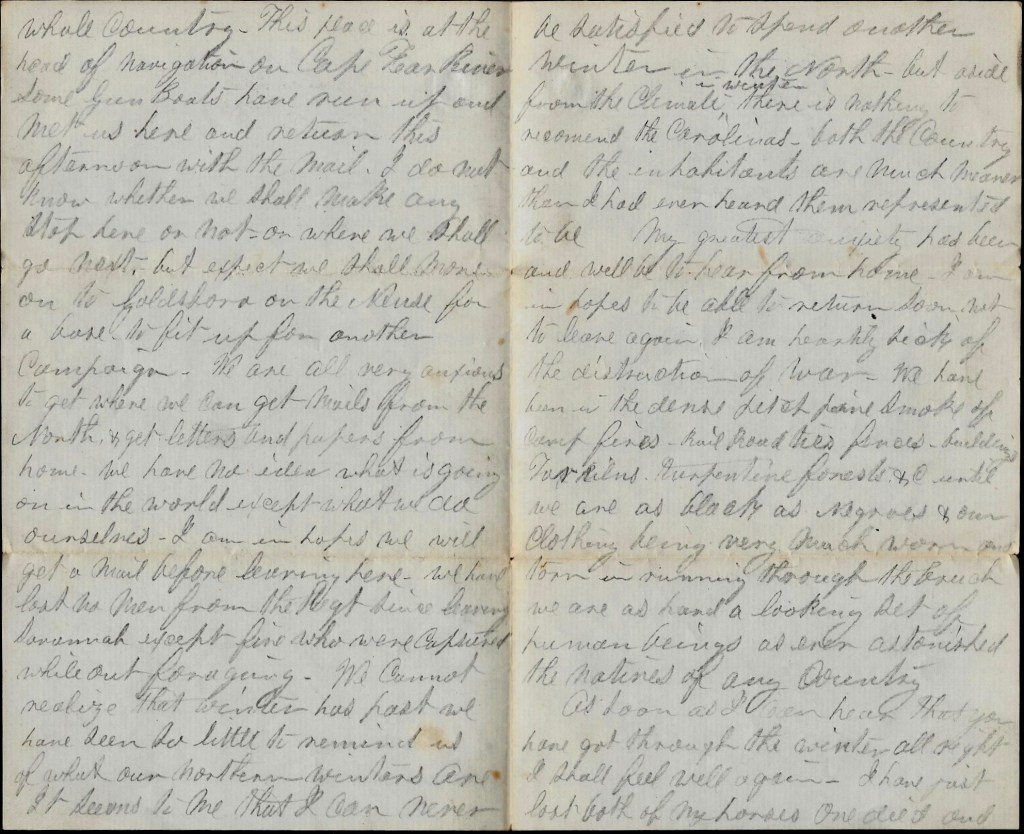 whole Country - This place is at the
head of navigation on Cape Fear River
Some Gun Boats have run up and
met us here and return this
afternoon with the Mail. I do not
know whether we shall make any
Stop here or not - or where we shall
go next, but expect we shall move
on to Goldsboro on the Neuse for
a base to fit up for another
Campaign - We are all very anxious
to get where we can get Mails from the
North, & get letters and papers from
home - we have no idea what is going
on in the world except what we do
ourselves - I am in hopes we will
get a Mail before leaving here - we have
lost no Men from the Regt since leaving
Savannah except five who were Captured
while out foraging - We Cannot
realize that winter has past we
have seen so little to remind us
of what our Northern winters are
It seems to me that I can never
be satisfied to spend another
winter in the North - but aside
from the Climate in winter there is nothing to
recomend the Carolinas - both the Country
and the inhabitants are much meaner
then I had ever heard them represented
to be My greatest anxiety has been
and will be to hear from home - I am
in hopes to be able to return soon not
to leave again. I am heartily sick of
the distruction of war - We have
been in the dense pitch pine smoke of
camp fires - Rail Road ties fences - buildings
Tar Kilns. turpentine forests. &c until
we are as black as Negroes & our
Clothing being very much worn and
torn in running through the brush
we are as hard a looking set of
human beings as ever astonished
the natives of any Country
As soon as I can hear that you
have got through the winter all right
I shall feel well again - I have just
lost both of my horses One died and